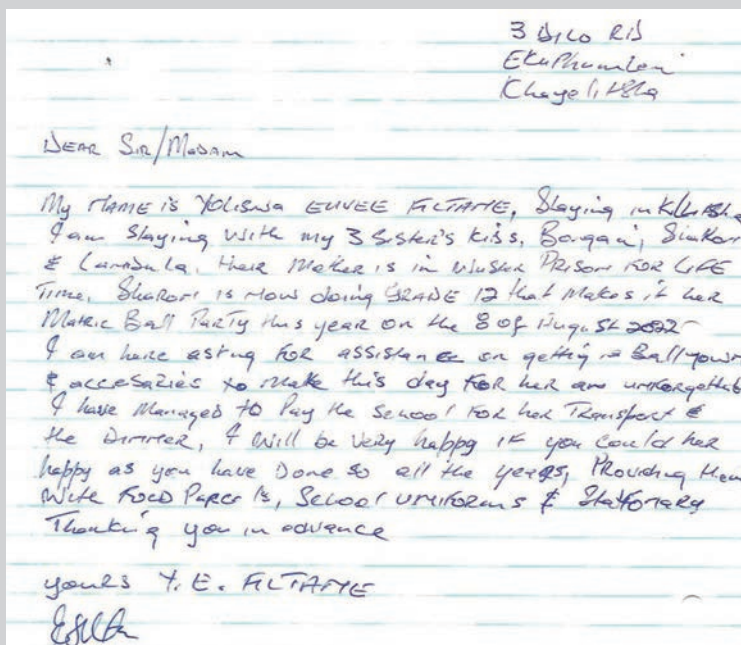 3 Dilo Rd
Ekuphumleni
Khayelitsha
DEAR SIR/MADAM
My NAME is YOLISWA EUVEE FILTANE, Staying in
I am Staying with my 3 Sister's kiss, Bongani,
& Landula. their Mother is in PRISON FOR LIFE
Time, Sharon is now doing GRADE 12 that makes it her
Matric Ball Party this year on the 8 of August 2022
I am here asking FOR assistance on getting a Ballgown
& accesazies to make this day FOR her an unforgettab
I have Managed to Pay the School FOR her Transport &
the Dinner, I will be very happy IF you could her
happy as you have Done so all the years, Providing them
With FOOD Parcels, School UNIFORMS & Stationary
Thanking you in advance
yours Y.E. FILTANE